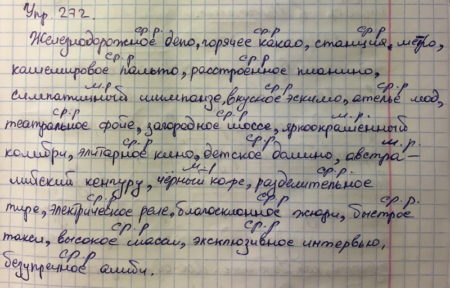 Упр 272
ср.р. ср.р ср.р ср.р
Железнодорожное депо, горячее какао, станция, метро,
ср.р ср.р
кашемировое пальто, расстроенное пианино,
м.р ср.р ср.р
симпатичный шимпанзе, вкусное эскимо, ателье мод,
ср.р ср.р м.р.
театральное фойе, загородное шоссе, яркоокрашенный
ср.р ср.р м.р.
колибри, элитарное кино, детское домино, австра-
м.р ср.р.
лийский кенгуру, чёрный кофе, разделительное
ср.р ср.р ср.р.
тире, электрическое реле, благосклонное жюри, быстрое
ср.р ср.р
такси, высокое шасси, эксклюзивное интервью,
ср.р
безупречное алиби.